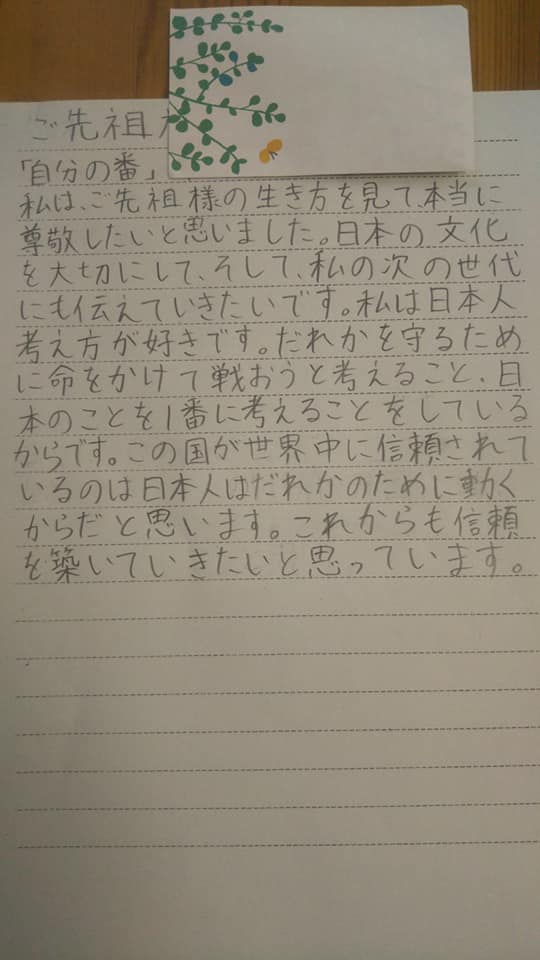 ご先祖
「自分の番」
私は、ご先祖様の生き方を見て、本当に
尊敬したいと思いました。日本の文化
を大切にして、そして、私の次の世代
にも伝えていきたいです。私は日本人
考え方が好きです。だれかを守るため
に命をかけて戦おうと考えること、日
本のことを1番に考えることをしている
からです。この国が世界中に信頼されて
いるのは日本人はだれかのために動く
からだと思います。これからも信頼
を築いていきたいと思っています。